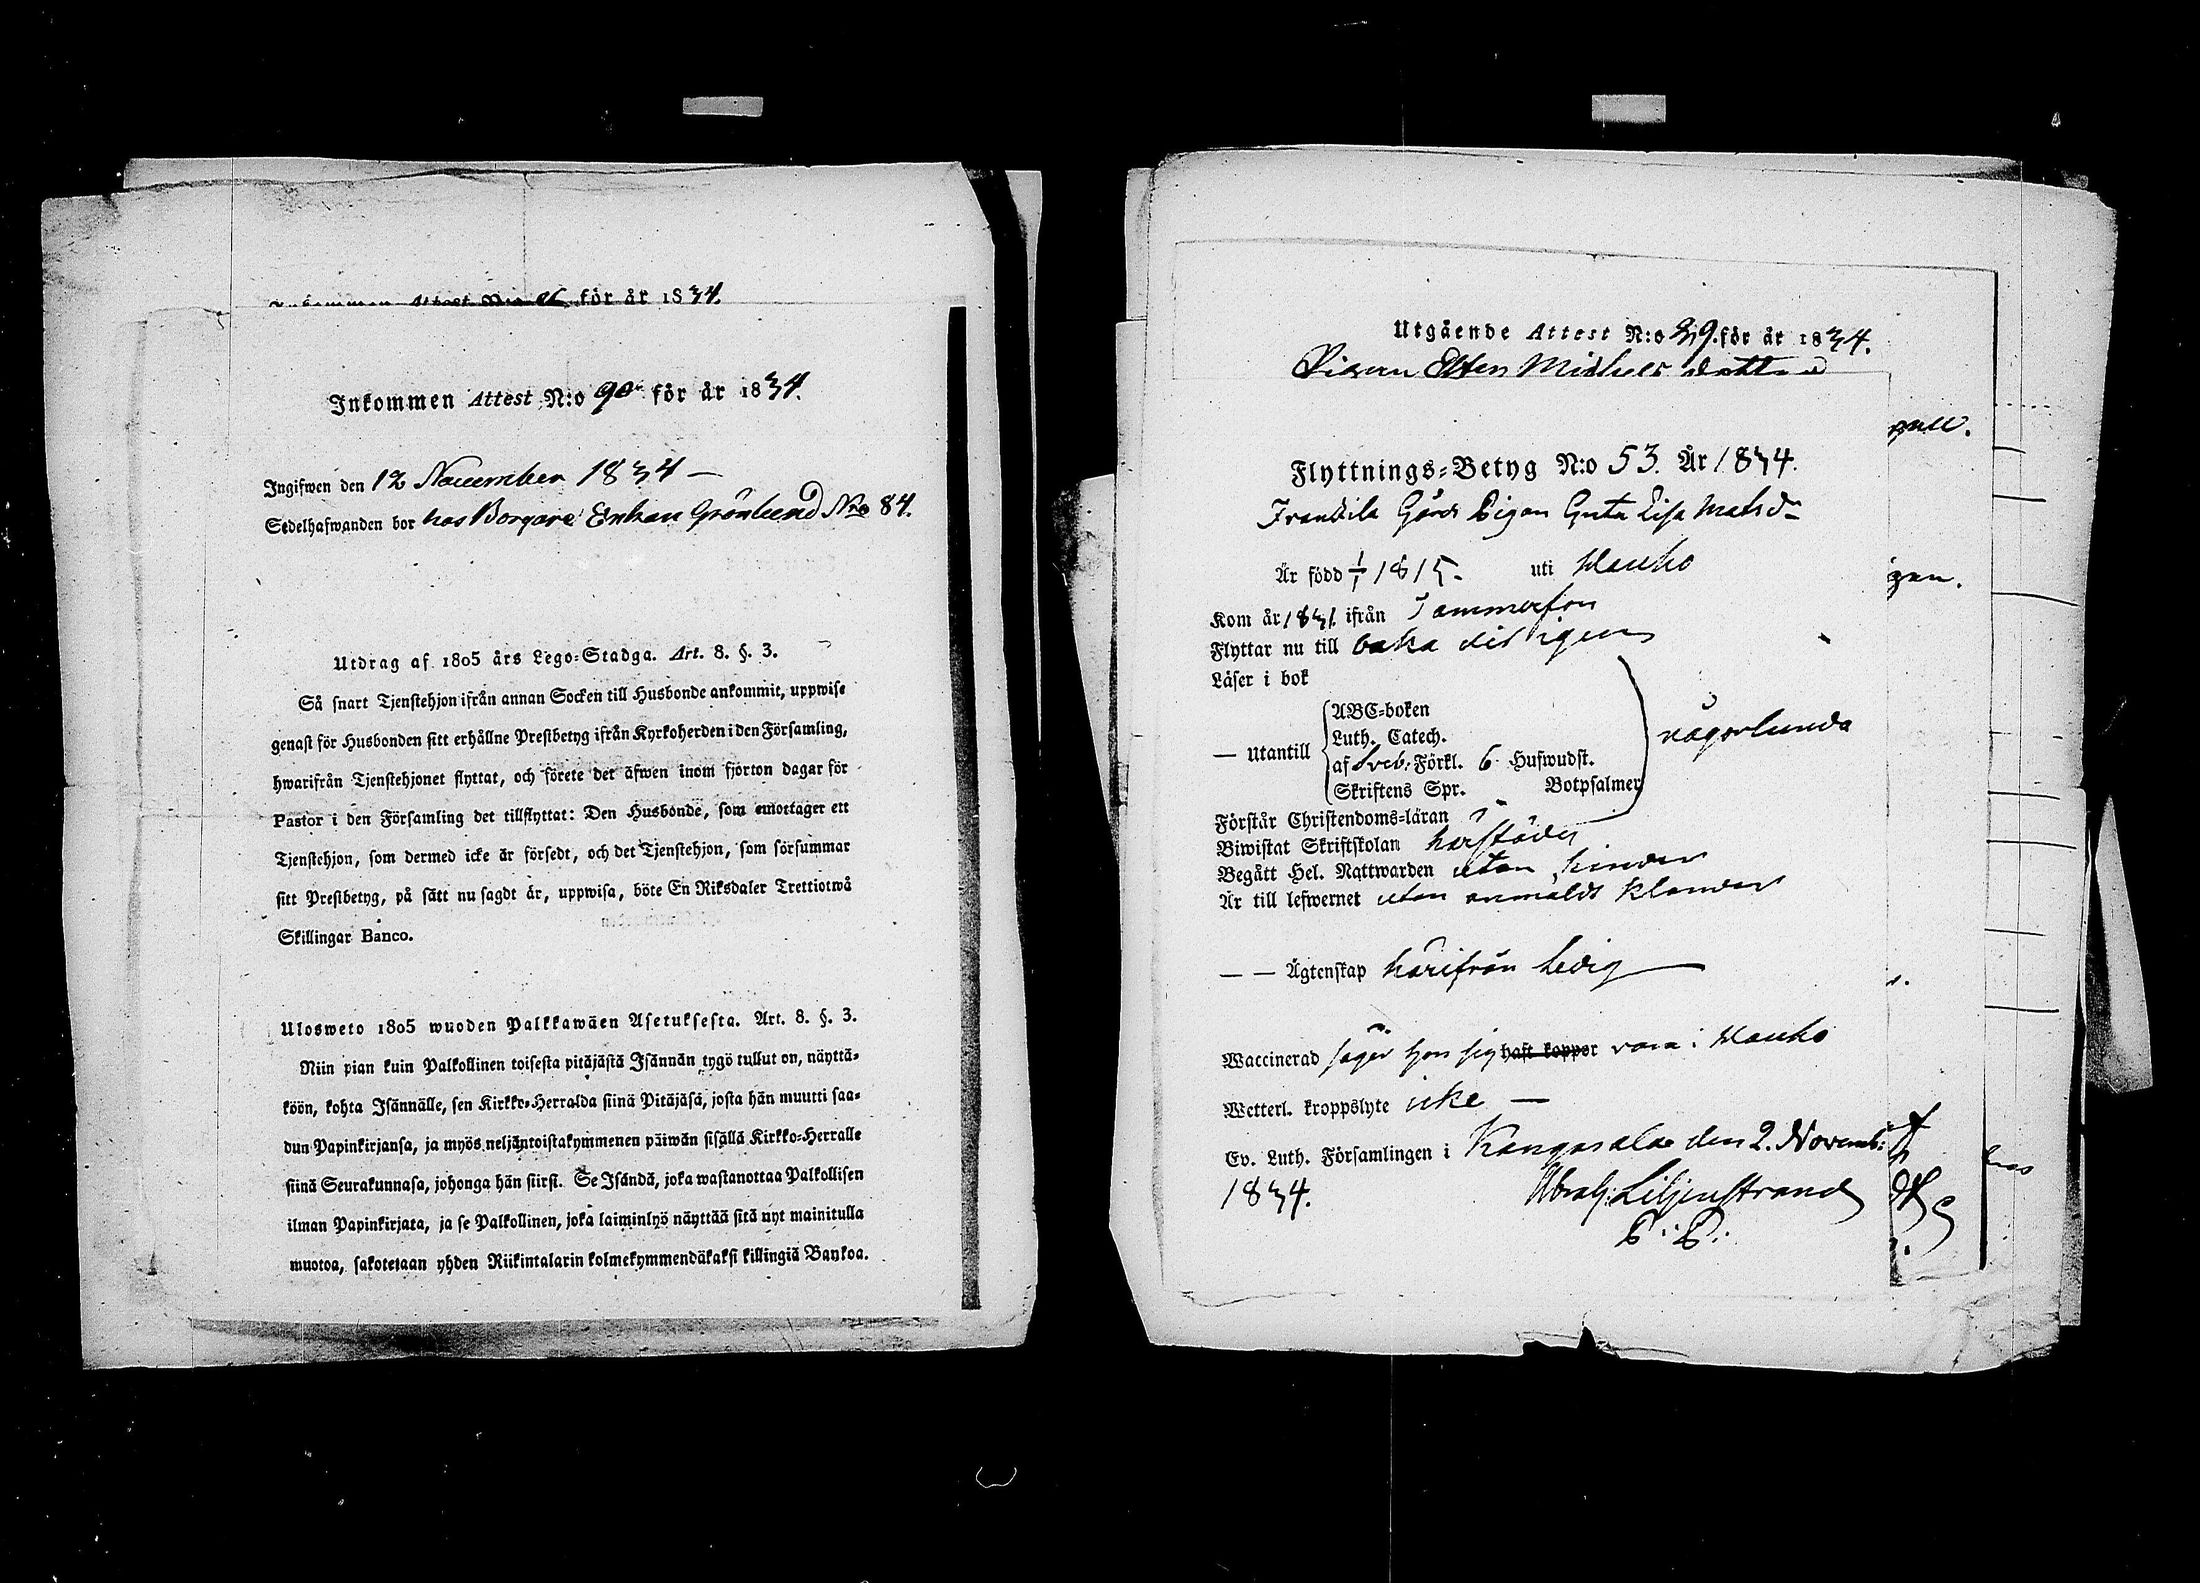 för år 1834.
Inkommen Attest N:o 90 för år 1834.
Ingifwen den 12 November 1834 —
Sedelhafwanden bor hos Borgare Enkan Grönlund Nro 84.
Utdrag af 1805 års Lego-Stadga. Art. 8. §. 3.
Så snart Tjenstehjon ifrån annan Socken till Husbonde ankommit, uppwise
genast för Husbonden sitt erhållne Prestbetyg ifrån Kyrkoherden i den Församling,
hwarifrån Tjenstehjonet flyttat, och förete det äfwen inom fjorton dagar för
Pastor i den Församling det tillflyttat: Den Husbonde, som emottager ett
Tjenstehjon, som dermed icke är försedt, och det Tjenstehjon, som försummar
sitt Prestbetyg, på sätt nu sagdt är, uppwisa, böte En Riksdaler Trettiotwå
Skillingar Banco.
Ulosweto 1805 wuoden Palkkawäen Asetuksesta. Art. 8. §. 3.
Niin pian kuin Palkollinen toisesta pitäjästä Isännän tygö tullut on, näyttä-
köön, kohta Isännälle, sen Kirkko-Herralda siinä Pitäjäsä, josta hän muutti saa-
dun Papinkirjansa, ja myös neljäntoistakymmenen päiwän sisällä Kirkko-Herralle
siinä Seurakunnasa, johonga hän siirsi. Se Isändä, joka wastanottaa Palkollisen
ilman Papinkirjata, ja se Palkollinen, joka laiminlyö näyttää sitä nyt mainitulla
muotoa, sakotetaan yhden Riikintalarin kolmekymmendäkaksi killingiä Bankoa.
Utgående Attest N:o 39. för år 1834.
Pigan Michelsdotter
Flyttnings-Betyg N:o 53. År 1834.
Gårds Pigan Greta Lisa Matsdr
Är född 1/1 1815. uti Wanho
Kom år 1831 ifrån Tammerfors
Flyttar nu till baka dit igen
Läser i bok
— Utantill
ABC-boken
Luth. Catech.
af Sveb: Förkl. 6 Hufwudst.
Skriftens Spr. Botpsalmer
någorlunda
Förstår Christendoms-läran
Biwistat Skriftskolan härstädes
Begått Hel. Nattwarden utan hinder
Är till lefwernet utan anmäldt klander
— — Ägtenskap härifrån ledig
Waccinerad säger hon sig haft koppor vara i Wanho
Wetterl. kroppslyte icke —
Ev. Luth. Församlingen i Kangasala den 2. Novemb:
1834. Abrah: Liljenstrand
P. P.